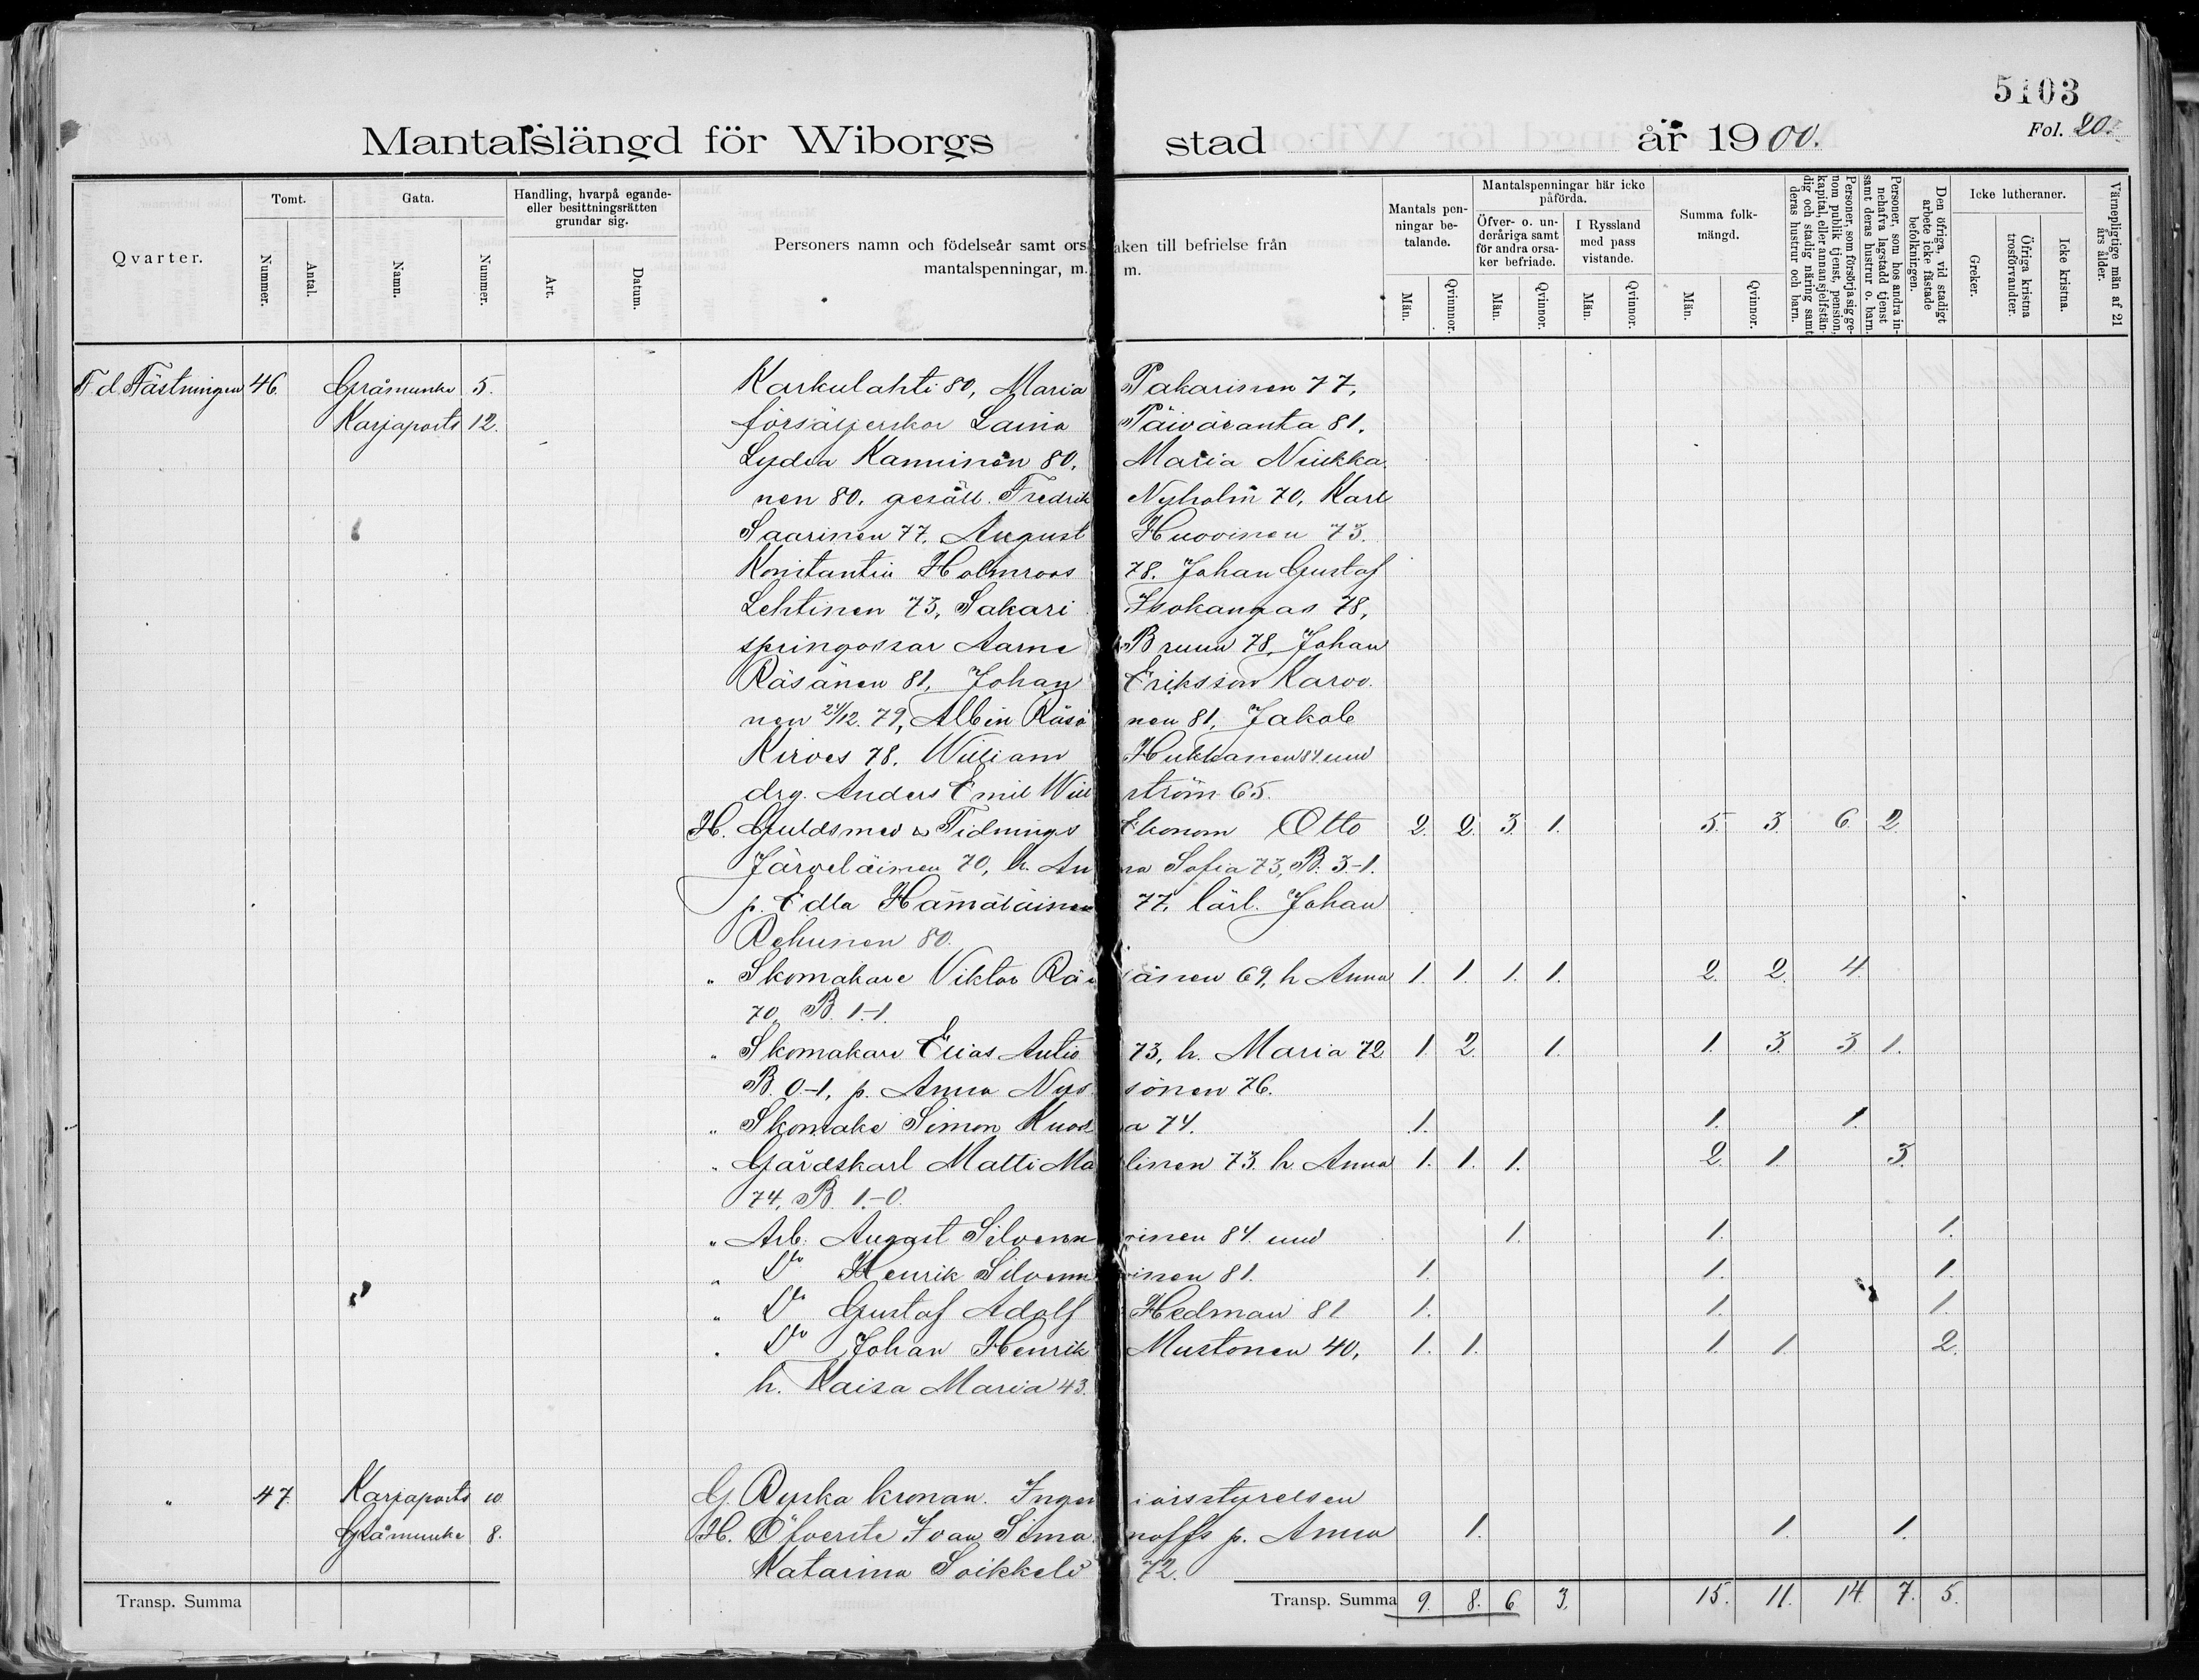 5103
Fol. 20.
Mantalslängd för Wiborgs stad år 1900.
Qvarter.
Tomt.
Nummer.
Antal.
Gata.
Namn.
Nummer.
Handling, hvarpå egande- eller besittningsrätten grundar sig.
Art.
Datum.
Personers namn och födelseår samt orsaken till befrielse från
mantalspenningar, m. m.
Mantals penningar betalande.
Män.
Qvinnor.
Mantalspenningar här icke påförda.
Öfver- o. underåriga samt för andra orsaker befriade.
Män.
Qvinnor.
I Ryssland med pass vistande.
Män.
Qvinnor.
Summa folkmängd.
Män.
Qvinnor.
Personer, som försörja sig genom publik tjenst, pension, kapital, eller annan sjelfständig och stadig näring samt deras hustrur och barn.
Personer, som hos andra innehafva lagstadd tjenst samt deras hustrur o. barn.
Den öfriga, vid stadigt arbete icke fästade befolkningen.
Icke lutheraner.
Greker.
Öfriga kristna trosförvandter.
Icke kristna.
Värnepligtige män af 21 års ålder.
F. d. Fästningen 46. Gråmunke 5. Karkulahti 80, Maria Pakarinen 77,
Karjaports 12. försäljerskor Laina Päiväranta 81,
Lydia Kanninen 80, Maria Niukka
nen 80. gesäll. Fredrik Nyholm 70, Karl
Saarinen 77. August Huovinen 73.
Konstantin Holmroos 78. Johan Gustaf
Lehtinen 73, Sakari Isokangas 78,
springossar Aarne Bruun 78, Johan
Räsänen 81, Johan Eriksson Karvo
nen 24/12. 79, Albin Räsä nen 81, Jakob
Kirves 78. William Hukkanen 84 und
drg. Anders Emil Wid ström 65.
H. Guldsmed & Tidnings Ekonom Otto 2. 2. 3. 1. 5. 3. 6. 2.
Järveläinen 70, h. An na Sofia 73, B. 3-1.
p. Edla Hämäläinen 77, lärl. Johan
Rehunen 80.
" Skomakare Viktor Rä sänen 69, h Anna 1. 1. 1. 1. 2. 2. 4.
70, B. 1-1.
" Skomakare Elias Antio 73, h. Maria 72 1. 2. 1. 1. 3. 3. 1.
B. 0-1, p. Anna Nys sönen 76.
" Skomake Simon Kuos a 74. 1. 1. 1.
" Gårdskarl Matti Ma linen 73. h Anna 1. 1. 1. 2. 1. 3.
74, B. 1-0.
" Arb. August Silvenn oinen 84. und 1. 1. 1.
" Do Henrik Silvenn oinen 81. 1. 1. 1.
" Do Gustaf Adolf Hedman 81 1. 1. 1.
" Do Johan Henrik Mustonen 40, 1. 1. 1. 1. 2.
h. Kaisa Maria 43.
" 47. Karjaports 10. G. Ryska kronan. Ingen iörsstyrelsen
Gråmunke 8. H. Öfverste Ivan Sima noffs p. Anna 1. 1. 1.
Katarina Soikkeli 72.
Transp. Summa
Transp. Summa 9. 8. 6 3. 15. 11. 14. 7. 5.